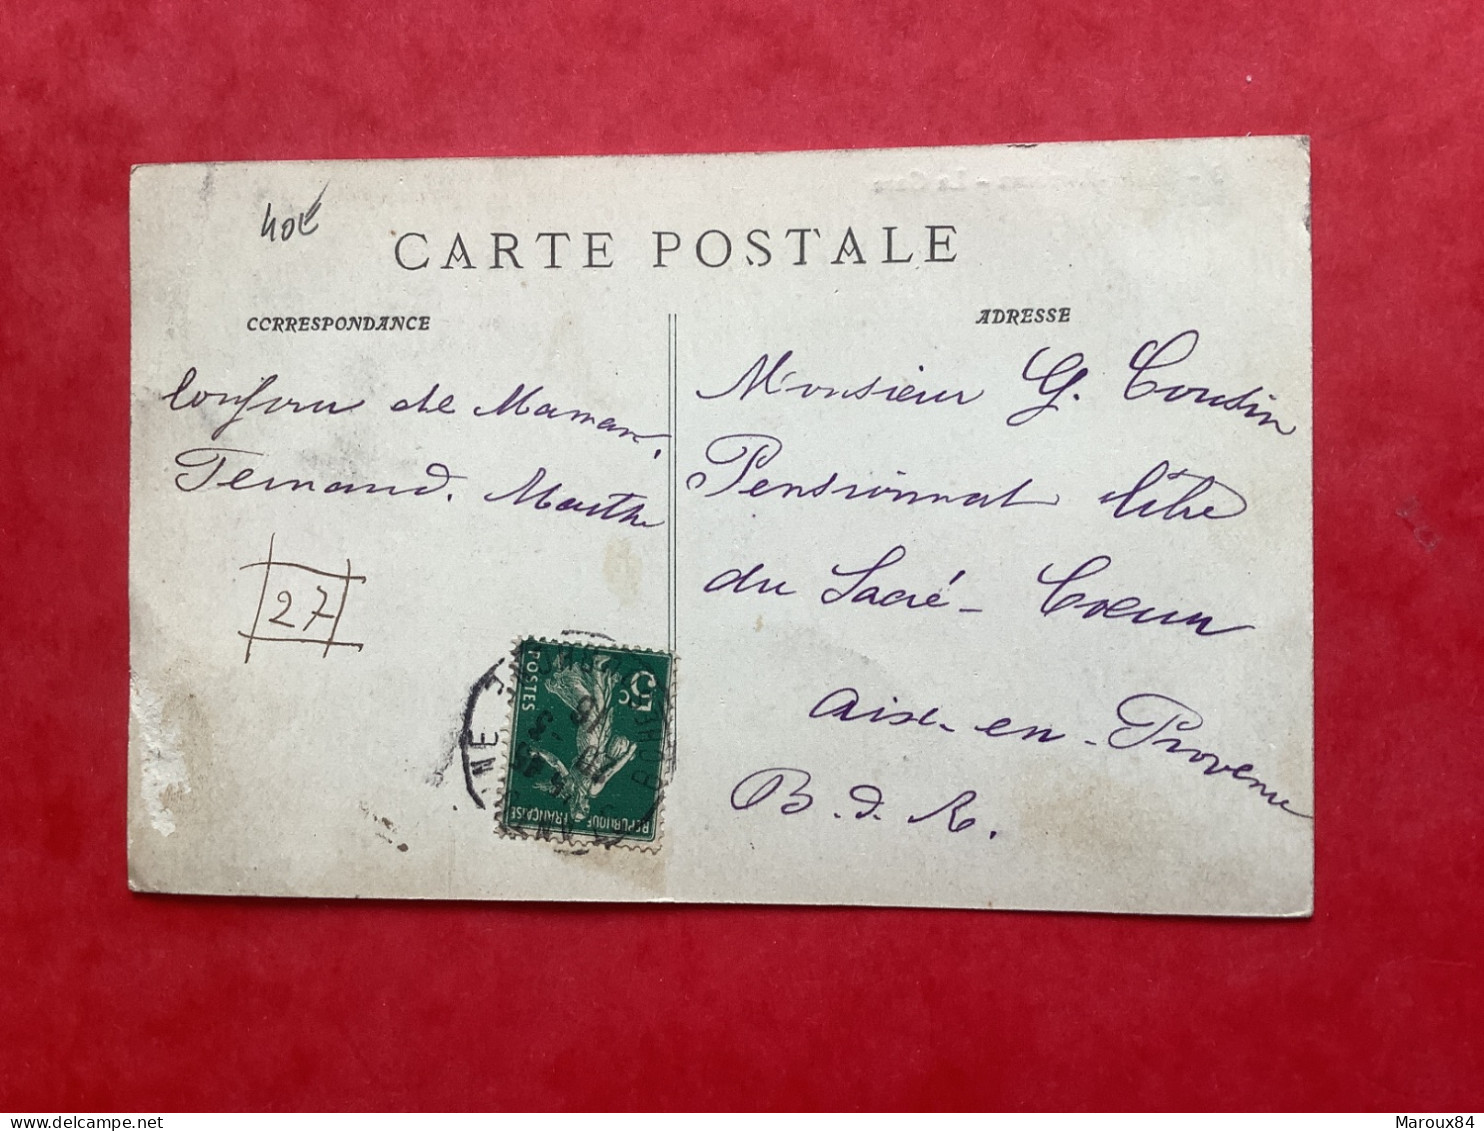 40€
CARTE POSTALE
CORRESPONDANCE
ADRESSE
de Maman,
Fernand. Marthe
27
Monsieur G. Cousin
Pensionnat libre
du Sacré-Coeur
Aix-en-Provence
B.d.R.
5c
POSTES
REPUBLIQUE FRANÇAISE
La Gare
Maroux84